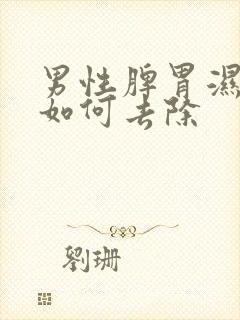 男性脾胃濕
如何去除
劉珊